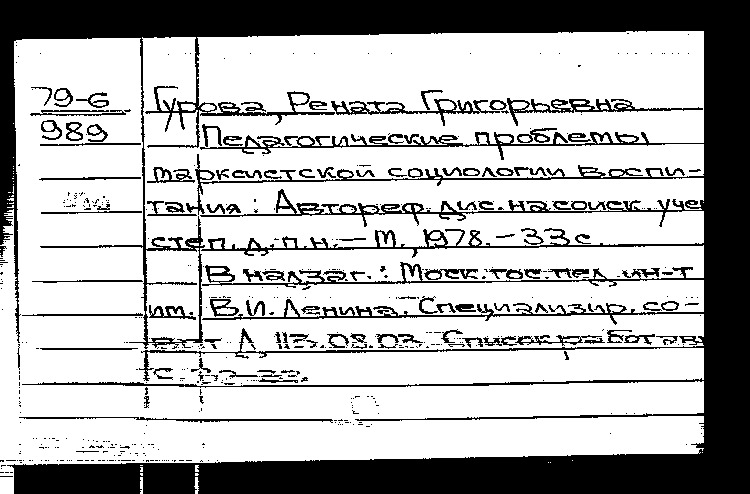 79-6 Гурова, Рената Григорьевна
989 Педагогические проблемы
марксистской социологии воспи-
тания : Автореф. дис. на соиск. учен
степ. д. п. н. — М., 1978. — 33 с.
В надзаг.: Моск. гос. пед. ин-т
им. В.И. Ленина. Специализир. со-
вет Д 113.08.03. Список работ авт
с.